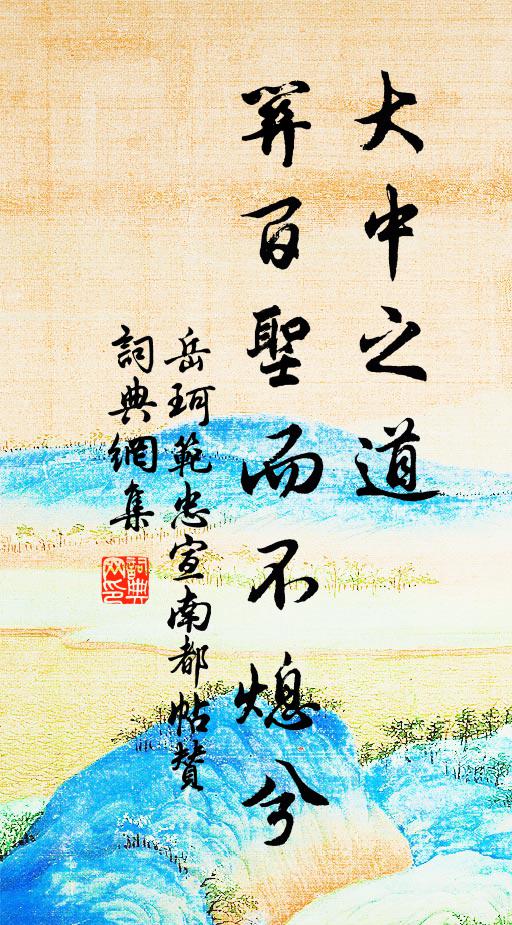 大中之道
羿百聖而不熄兮
岳珂範忠宣南都帖贊
詞典網集
詞典网印